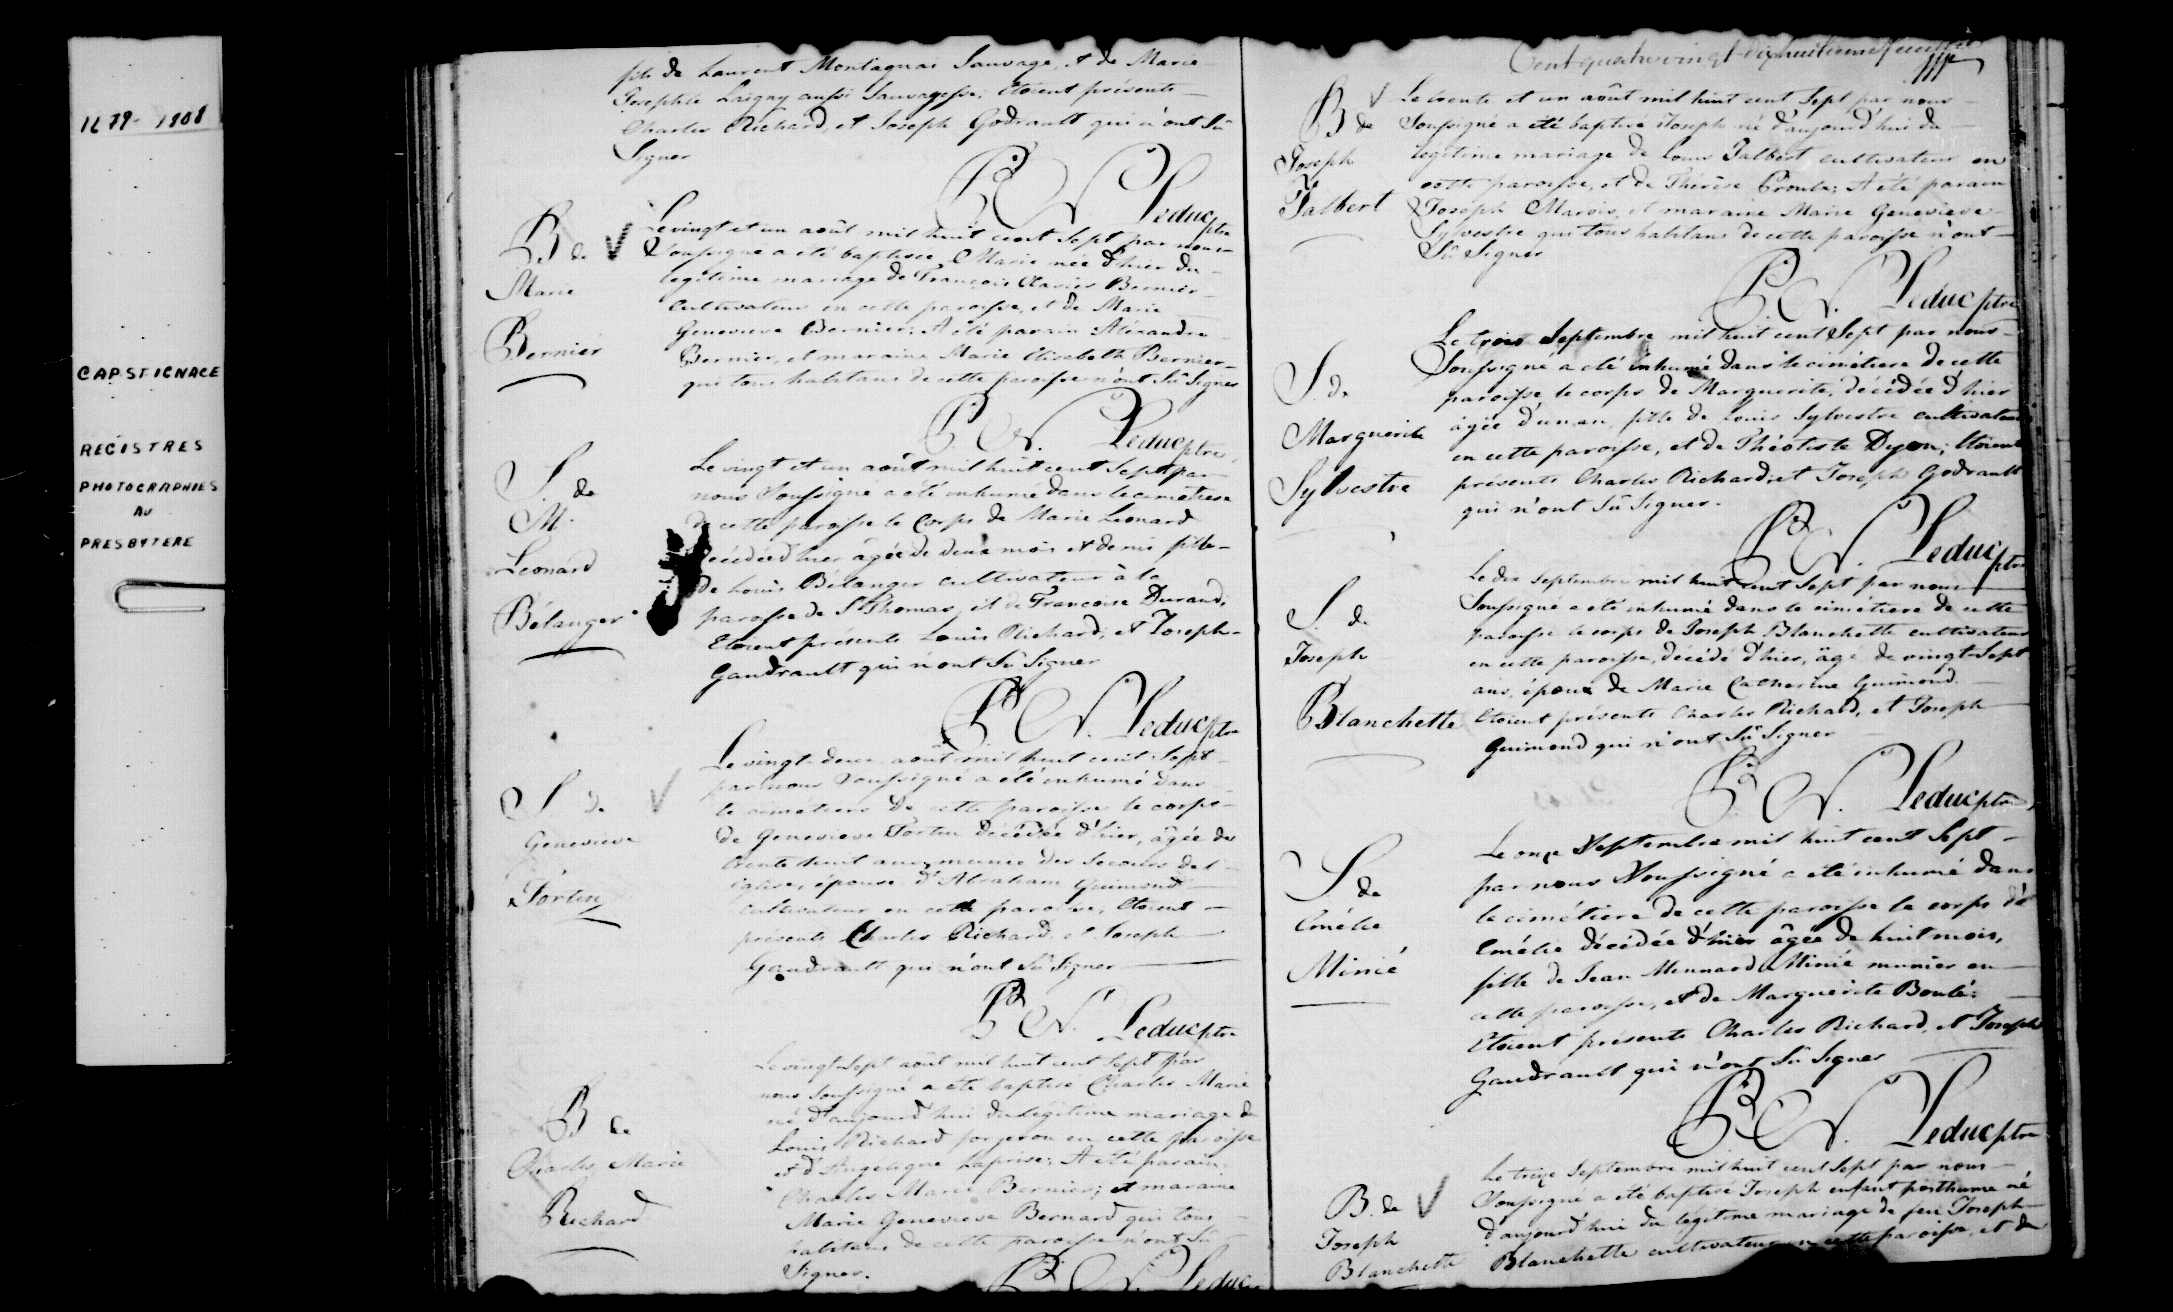 1679-1908
CAP ST IGNACE
REGISTRES
PHOTOGRAPHIES
AU
PRESBYTERE
fils de Laurent Montagnai Sauvage, et de Marie
Josephte Laigny aussi Sauvagesse; Etoient présents
Charles Richard, et Joseph Godrault qui n'ont Sû
Signer
Leduc ptre
B de
Marie
Bernier
Le vingt et un août mil huit cent Sept par nous
Soussigné a été baptisée Marie née d'hier du
legitime mariage de François Xavier Bernier
cultivateur en cette paroisse, et de Marie
Genevieve Bernier; A été parain Alexandre
Bernier, et maraine Marie Elisabeth Bernier
qui tous habitans de cette paroisse n'ont Sû Signer
Leduc ptre
S. de
M.
Leonard
Bélanger
Le vingt et un août mil huit cent Sept par
nous Soussigné a été inhumé dans le cimetiere
de cette paroisse le Corps de Marie Leonard
décédée d'hier âgée de deux mois et demi fille
de Louis Bélanger cultivateur à la
paroisse de St Thomas, et de Francoise Durand,
Etoient présents Louis Richard, et Joseph
Gaudrault qui n'ont Sû Signer
Leduc ptre
S de
Genevieve
Fortin
Le vingt-deux août mil huit cent Sept
par nous Soussigné a été inhumé dans
le cimetiere de cette paroisse le corps
de Genevieve Fortin décédée d'hier, âgée de
trente huit ans, munie des Secours de l'
Eglise, épouse d'Abraham Guimond
Cultivateur en cette paroisse, Etoient
présents Charles Richard et Joseph
Gaudrault qui n'ont Sû Signer
Leduc ptre
B de
Charles Marie
Richard
Le vingt-Sept août mil huit cent Sept par
nous Soussigné a été baptisé Charles Marie
né d'aujourd'hui du legitime mariage de
Louis Richard forgeron en cette paroisse
et d'Angelique Laprise; A été parain
Charles Marie Bernier; et maraine
Marie Genevieve Bernard qui tous
habitans de cette paroisse n'ont Sû
Signer.
Leduc
Cent quatre vingt-dix huitieme feuillet
B de
Joseph
Talbert
Le trente et un août mil huit cent Sept par nous
Soussigné a été baptisé Joseph né d'aujourd'hui du
legitime mariage de Louis Talbert cultivateur en
cette paroisse, et de Thérèse Proulx; A été parain
Joseph Marois, et maraine Marie Genevieve
Sylvestre qui tous habitans de cette paroisse n'ont
Sû Signer
Leduc ptre
S. de
Marguerite
Sylvestre
Le trois Septembre mil huit cent Sept par nous
Soussigné a été inhumé dans le cimetiere de cette
paroisse, le corps de Marguerite, décédée d'hier
âgée d'un an, fille de Louis Sylvestre cultivateur
en cette paroisse, et de Théotiste Dyon; Etoient
présents Charles Richard, et Joseph Godrault
qui n'ont Sû Signer.
Leduc ptre
S. de
Joseph
Blanchette
Le dix Septembre mil huit cent Sept par nous
Soussigné a été inhumé dans le cimétiere de cette
paroisse le corps de Joseph Blanchette cultivateur
en cette paroisse, décédé d'hier, âgé de vingt-Sept
ans, époux de Marie Catherine Guimond.
Etoient présents Charles Richard, et Joseph
Guimond qui n'ont Sû Signer
Leduc ptre
S de
Emélie
Minié
Le onze Septembre mil huit cent Sept
par nous Soussigné a été inhumé dans
le cimétiere de cette paroisse le corps d'
Emélie décédée d'hier âgée de huit mois,
fille de Jean Mennard Minié munier en
cette paroisse, et de Marguerite Boulé;
Etoient présents Charles Richard, et Joseph
Gaudrault qui n'ont Sû Signer
Leduc ptre
B. de
Joseph
Blanchette
Le treize Septembre mil huit cent Sept par nous
Soussigné a été baptisé Joseph enfant posthume né
d'aujourd'hui du legitime mariage de feu Joseph
Blanchette cultivateur en cette paroisse, et de